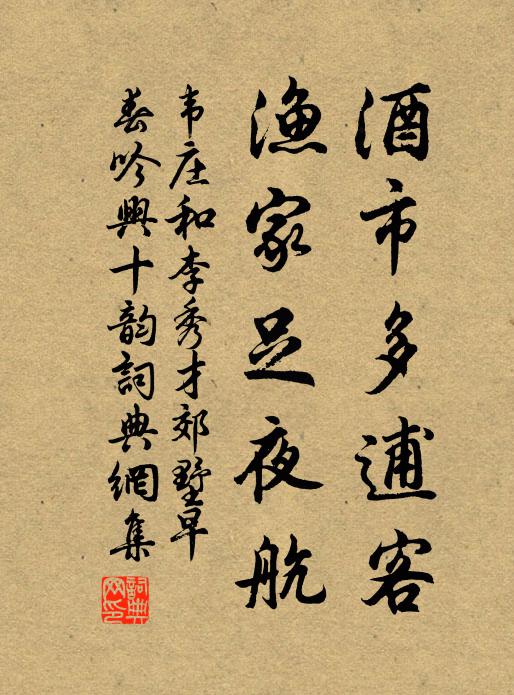 酒市多逋客
渔家足夜航
韦庄和李秀才郊墅早
春吟興十韵詞典網集
詞典
网印